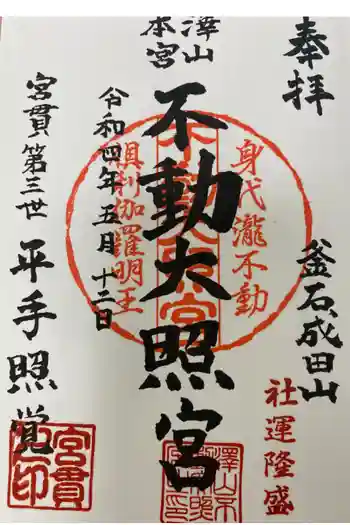 奉拝
釜石成田山
社運隆盛
澤山
本宮
不動大照宮
身代瀧不動
倶利伽羅明王
令和四年五月十二日
宮貫第三世
平手照覚
宮貫
印